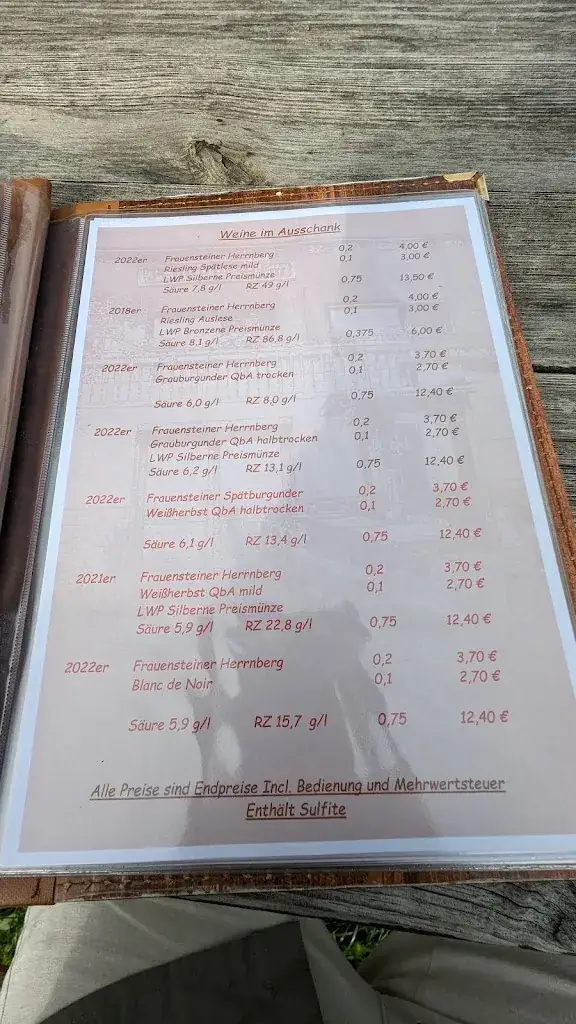 Weine im Ausschank
2022er Frauensteiner Herrnberg 0,2 4,00 €
Riesling Spätlese mild 0,1 3,00 €
LWP Silberne Preismünze
Säure 7,8 g/l RZ 49 g/l 0,75 13,50 €
2018er Frauensteiner Herrnberg 0,2 4,00 €
Riesling Auslese 0,1 3,00 €
LWP Bronzene Preismünze
Säure 8,1 g/l RZ 86,8 g/l 0,375 6,00 €
2022er Frauensteiner Herrnberg 0,2 3,70 €
Grauburgunder QbA trocken 0,1 2,70 €
Säure 6,0 g/l RZ 8,0 g/l 0,75 12,40 €
2022er Frauensteiner Herrnberg 0,2 3,70 €
Grauburgunder QbA halbtrocken 0,1 2,70 €
LWP Silberne Preismünze
Säure 6,2 g/l RZ 13,1 g/l 0,75 12,40 €
2022er Frauensteiner Spätburgunder 0,2 3,70 €
Weißherbst QbA halbtrocken 0,1 2,70 €
Säure 6,1 g/l RZ 13,4 g/l 0,75 12,40 €
2021er Frauensteiner Herrnberg 0,2 3,70 €
Weißherbst QbA mild 0,1 2,70 €
LWP Silberne Preismünze
Säure 5,9 g/l RZ 22,8 g/l 0,75 12,40 €
2022er Frauensteiner Herrnberg 0,2 3,70 €
Blanc de Noir 0,1 2,70 €
Säure 5,9 g/l RZ 15,7 g/l 0,75 12,40 €
Alle Preise sind Endpreise Incl. Bedienung und Mehrwertsteuer
Enthält Sulfite